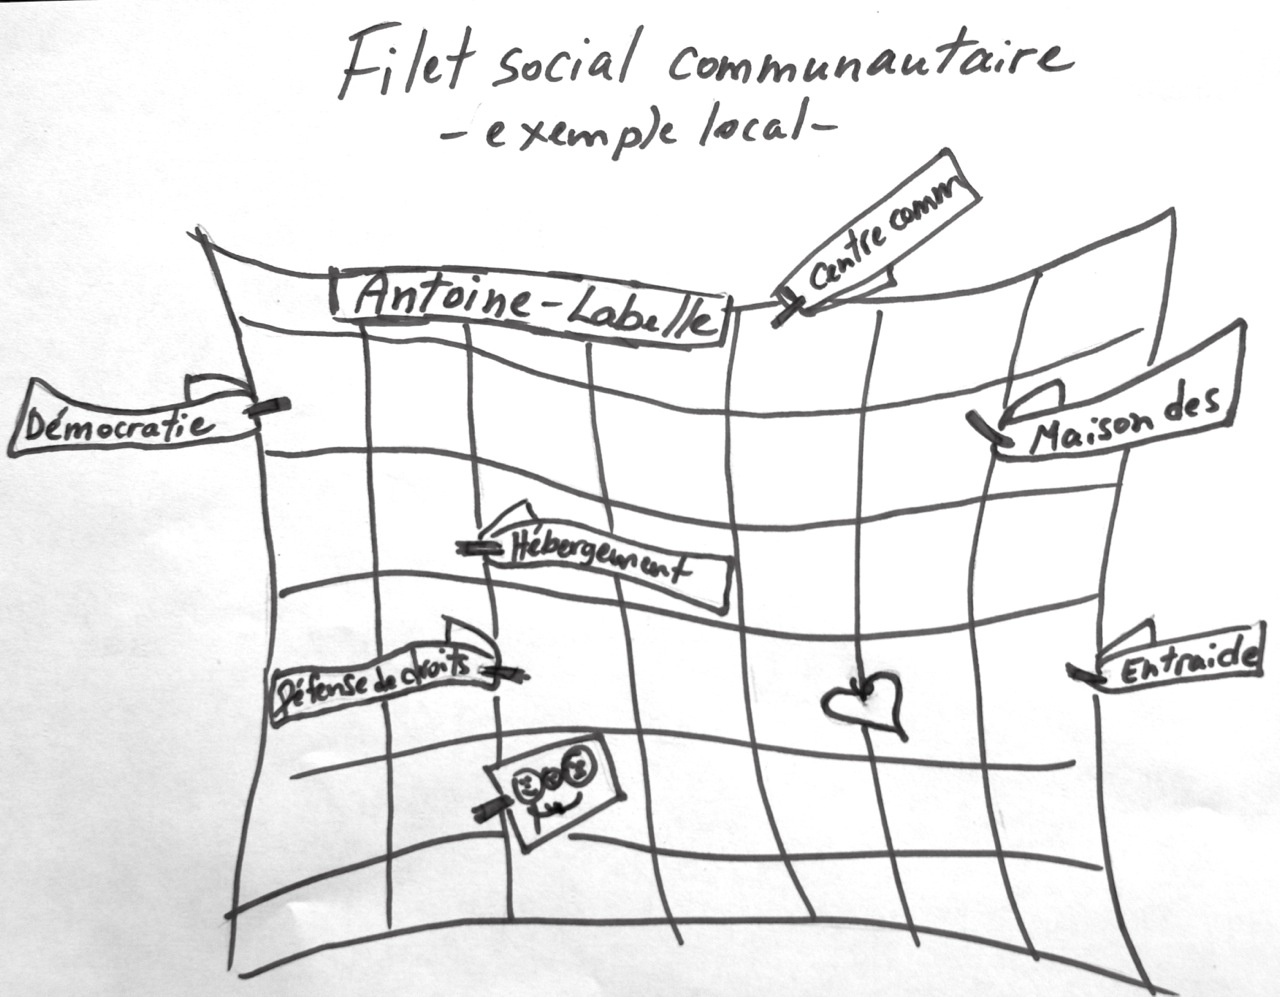 Filet social communautaire
- exemple local -
Centre comm
Antoine-Labelle
Démocratie
Maison des
Hébergement
Défense de droits
Entraide